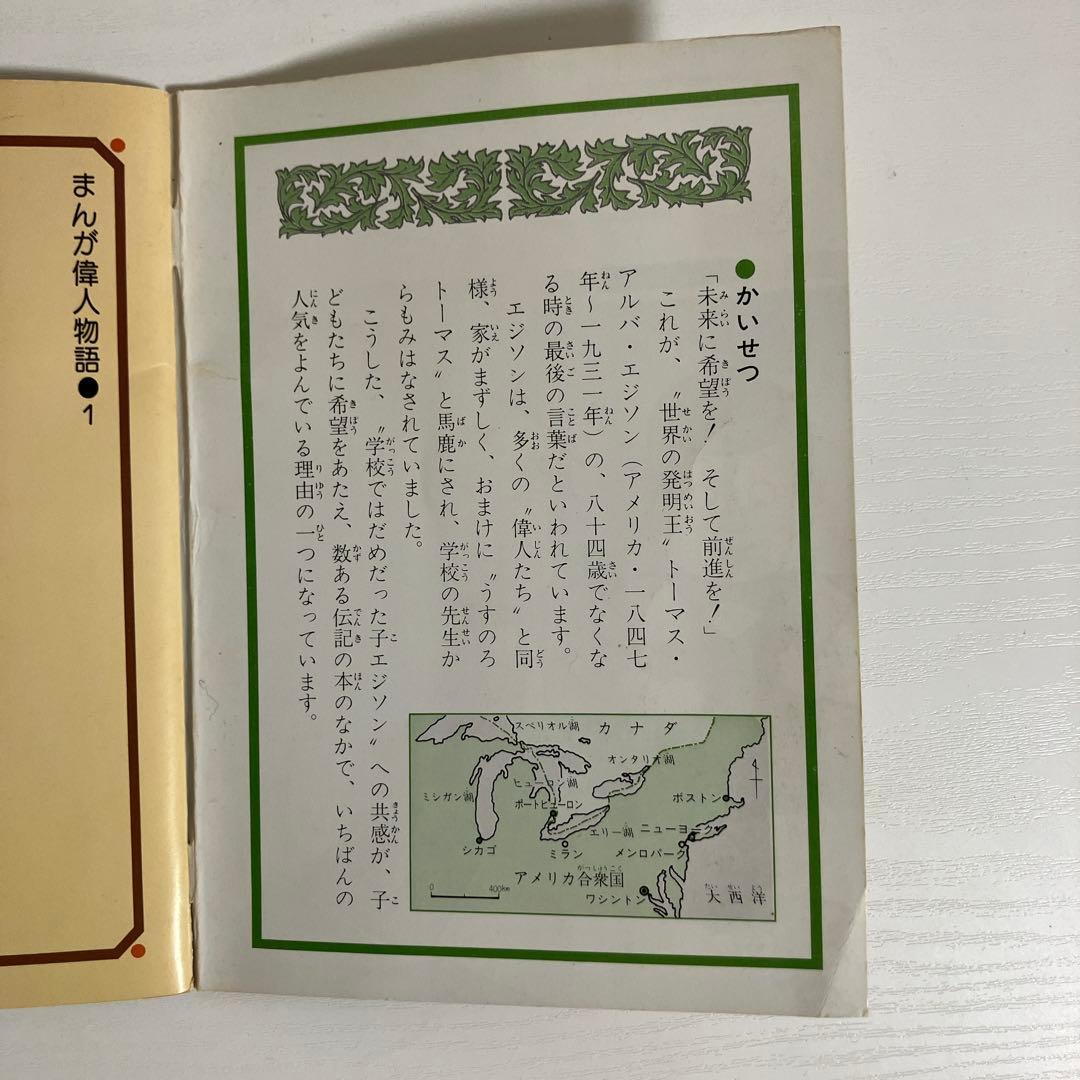 ●かいせつ
「未来に希望を！　そして前進を！」
これが、〝世界の発明王〟トーマス・
アルバ・エジソン（アメリカ・一八四七
年〜一九三一年）の、八十四歳でなくな
る時の最後の言葉だといわれています。
エジソンは、多くの〝偉人たち〟と同
様、家がまずしく、おまけに〝うすのろ
トーマス〟と馬鹿にされ、学校の先生か
らもみはなされていました。
こうした、〝学校ではだめだった子エジソン〟への共感が、子
どもたちに希望をあたえ、数ある伝記の本のなかで、いちばんの
人気をよんでいる理由の一つになっています。
スペリオル湖
カナダ
オンタリオ湖
ヒューロン湖
ミシガン湖
ポートヒューロン
ボストン
エリー湖
ニューヨーク
シカゴ
ミラン
メンロパーク
アメリカ合衆国
ワシントン
大西洋
0
400km
まんが偉人物語●1